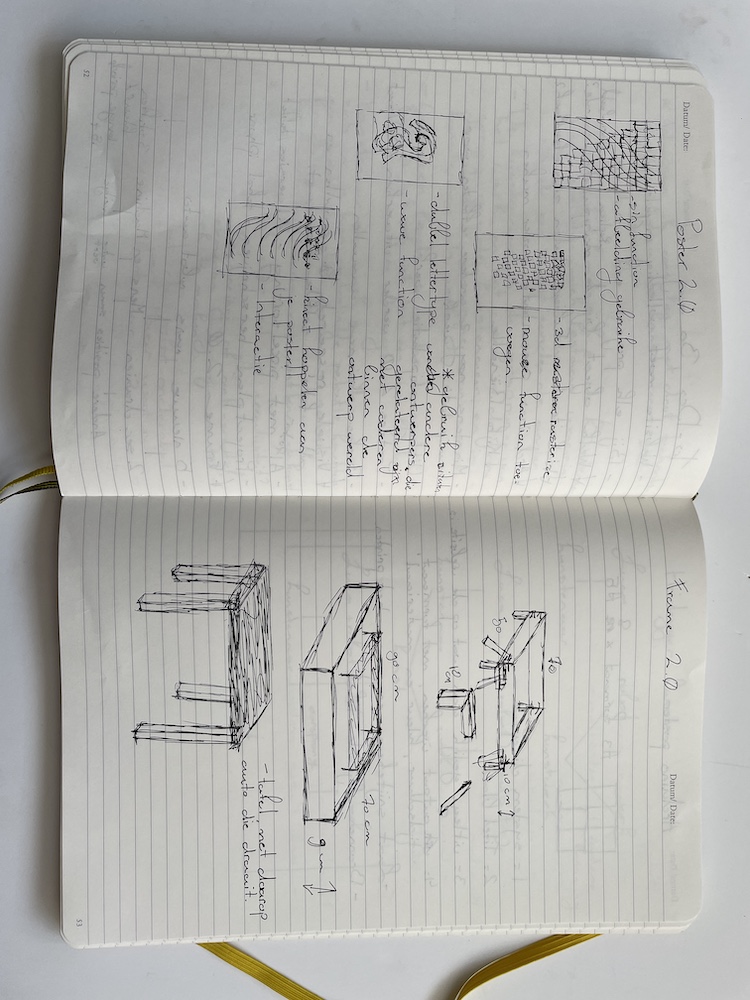 Datum/ Date:
Poster 2.0
- sin function
- afbeelding gebruike
- 3d rasterize
- mouse function toe-
voegen.
- dubbel lettertype
- wave function
* gebruik
andere
ontwerpers, die
gerelateerd zijn
met coderen
binnen de
ontwerp wereld
- kinect koppelen aan
je poster!!
- Interactie
52
Frame 2.0
Datum/ Date:
70
50
10 cm
cm
90 cm
70 cm
9 cm
- tafel, met daarop
auto die draait.
53